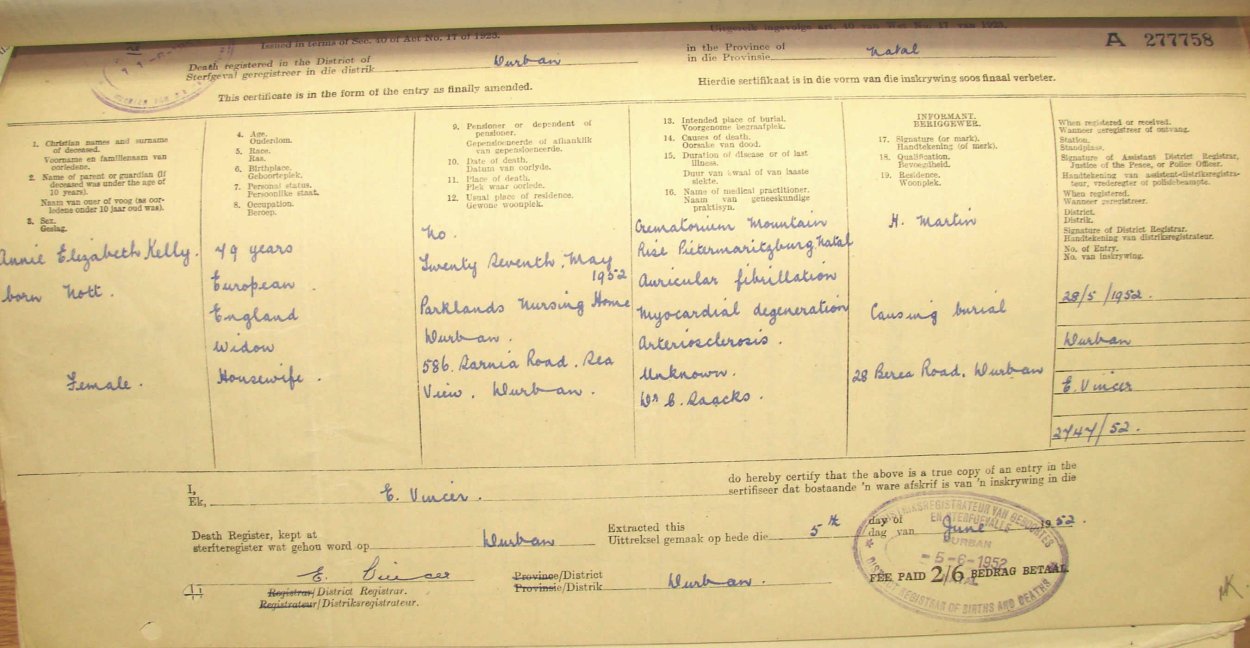 Issued in terms of Sec. 40 of Act No. 17 of 1923.
Uitgereik ingevolge art. 40 van Wet No. 17 van 1923.
A 277758
Death registered in the District of
Sterfgeval geregistreer in die distrik Durban
in the Province of
in die Provinsie Natal
This certificate is in the form of the entry as finally amended.
Hierdie sertifikaat is in die vorm van die inskrywing soos finaal verbeter.
1. Christian names and surname
of deceased.
Voorname en familienaam van
oorledene.
2. Name of parent or guardian (if
deceased was under the age of
10 years).
Naam van ouer of voog (as oor-
ledene onder 10 jaar oud was).
3. Sex.
Geslag.
Annie Elizabeth Kelly.
born Nott.
Female.
4. Age.
Ouderdom.
5. Race.
Ras.
6. Birthplace.
Geboorteplek.
7. Personal status.
Persoonlike staat.
8. Occupation.
Beroep.
79 years
European.
England
Widow
Housewife.
9. Pensioner or dependent of
pensioner.
Gepensioeneerde of afhanklik
van gepensioeneerde.
10. Date of death.
Datum van oorlyde.
11. Place of death.
Plek waar oorlede.
12. Usual place of residence.
Gewone woonplek.
No.
Twenty Seventh. May
1952
Parklands Nursing Home
Durban.
586. Sarnia Road. Sea
View. Durban.
13. Intended place of burial.
Voorgenome begraafplek.
14. Causes of death.
Oorsake van dood.
15. Duration of disease or of last
illness.
Duur van kwaal of van laaste
siekte.
16. Name of medical practitioner.
Naam van geneeskundige
praktisyn.
Crematorium Mountain
Rise Pietermaritzburg Natal
Auricular fibrillation
Myocardial degeneration
Arteriosclerosis.
Unknown.
Dr C. Saacks.
INFORMANT.
BERIGGEWER.
17. Signature (or mark).
Handtekening (of merk).
18. Qualification.
Bevoegdheid.
19. Residence.
Woonplek.
H. Martin
Causing burial
28 Berea Road. Durban
When registered or received.
Wanneer geregistreer of ontvang.
Station.
Standplaas.
Signature of Assistant District Registrar,
Justice of the Peace, or Police Officer.
Handtekening van assistent-distriksregistra-
teur, vrederegter of polisiebeampte.
When registered.
Wanneer geregistreer.
District.
Distrik.
Signature of District Registrar.
Handtekening van distriksregistrateur.
No. of Entry.
No. van inskrywing.
28/5/1952.
Durban
E. Vincer
2747/52.
I,
Ek, E. Vincer.
do hereby certify that the above is a true copy of an entry in the
sertifiseer dat bostaande 'n ware afskrif is van 'n inskrywing in die
Death Register, kept at
sterfteregister wat gehou word op Durban
Extracted this
Uittreksel gemaak op hede die 5th
day of
dag van June 1952.
E. Vincer
Registrar/District Registrar.
Registrateur/Distriksregistrateur.
Province/District
Provinsie/Distrik Durban.
FEE PAID 2/6 BEDRAG BETAAL
DISTRIKSREGISTRATEUR VAN GEBOORTES
EN STERFGEVALLE
DURBAN
-5-6-1952
NATAL
DISTRICT REGISTRAR OF BIRTHS AND DEATHS